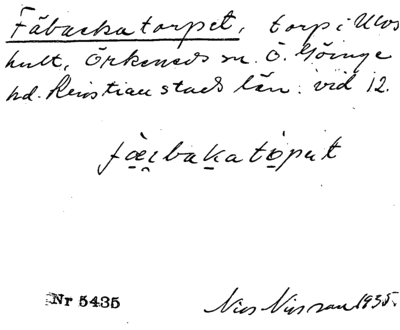 Fäbackatorpet, torp i Ulvs
hult, Örkeneds sn. Ö. Göinge
hd. Kristianstads län. vid 12.
fæ̱i̯baḵato̱pet
Nr 5435
Nils Nilsson 1935.